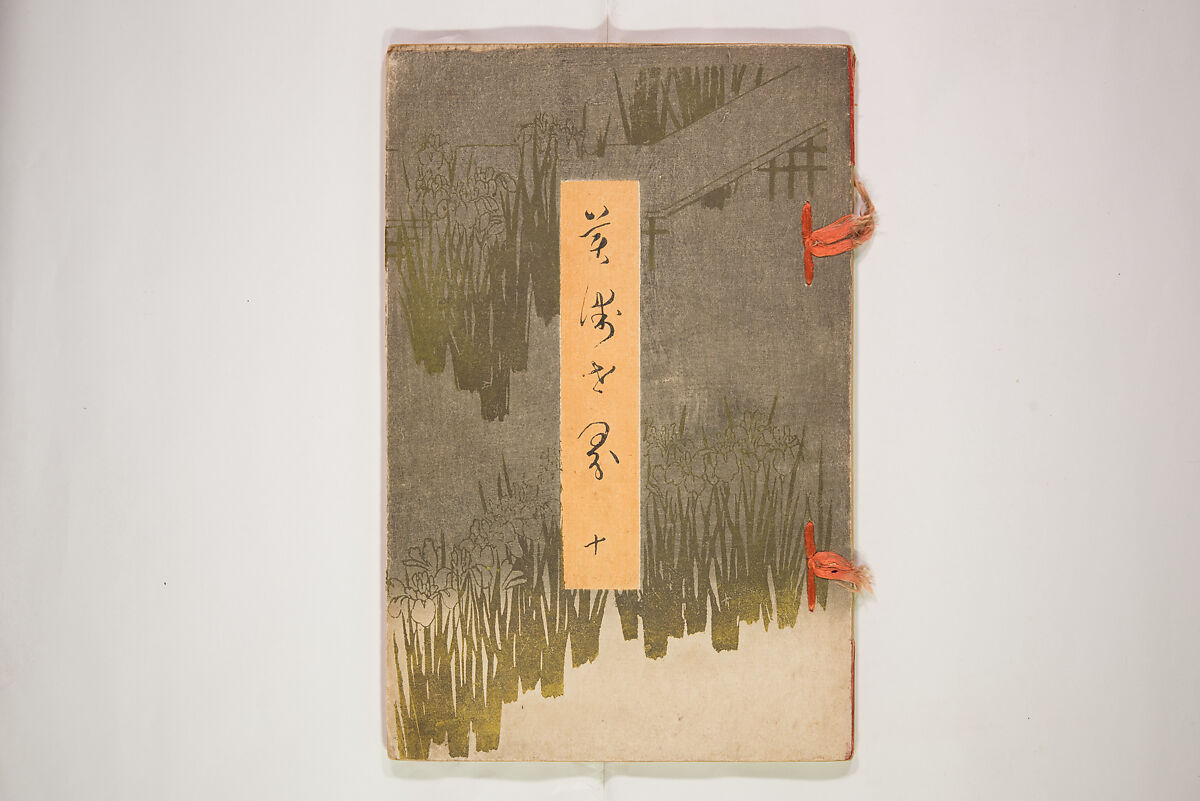 美術世界 十